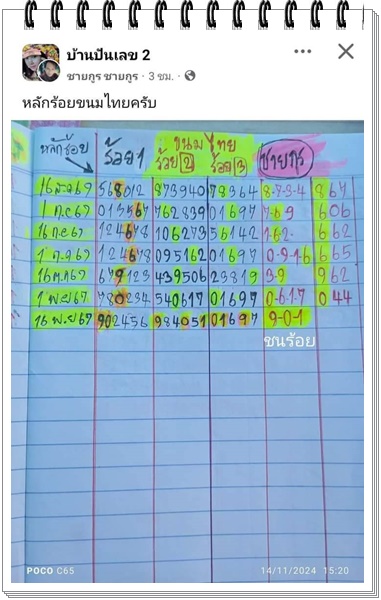 บ้านปันเลข 2
ชายกูร ชายกูร · 3 ชม. ·
หลักร้อยขนมไทยครับ
หลักร้อย ร้อย 1 ขนมไทย ชายกูร
ร้อย 2 ร้อย 3
16 ส.ค 67 568012 873940 78364 8-7-3-4 867
1 ก.ย 67 013467 762839 01697 7-6-9 606
16 ก.ย 67 124678 106273 56142 1-6-2- 662
1 ต.ค 67 124678 095162 01697 0-9-1-6 665
16 ต.ค 67 679123 439506 23819 3-9 962
1 พ.ย 67 780234 540617 01697 0-6-1-7 044
16 พ.ย 67 902456 984051 01697 9-0-1
ชนร้อย
POCO C65 14/11/2024 15:20